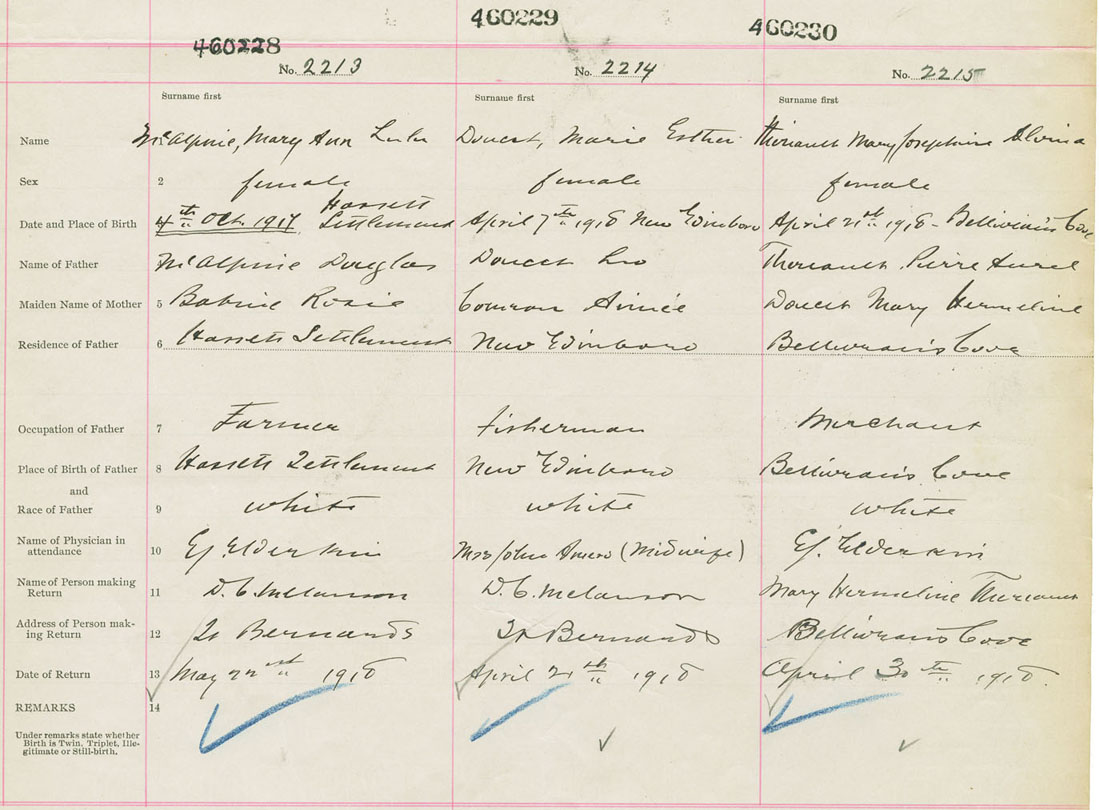 460228 460229 460230
No. 2213 No. 2214 No. 2215
Surname first Surname first Surname first
Name McAlpine, Mary Ann Lula Doucet, Marie Esther Theriault Mary Josephine Alvina
Sex 2 female female female
Hassett
Date and Place of Birth 4th Oct. 1917 Settlement April 7th 1918 New Edinboro April 21st 1918 - Belliveau's Cove
Name of Father McAlpine Douglas Doucet Leo Theriault Pierre Aurel
Maiden Name of Mother 5 Babine Rosie Comeau Aimée Doucet Mary Hermeline
Residence of Father 6 Hassett Settlement New Edinboro Belliveau's Cove
Occupation of Father 7 Farmer fisherman Merchant
Place of Birth of Father 8 Hassett Settlement New Edinboro Belliveau's Cove
and
Race of Father 9 white white white
Name of Physician in attendance 10 EJ Elderkin Mrs John Amero (Midwife) EJ. Elderkin
Name of Person making Return 11 D. C. Melanson D. C. Melanson Mary Hermeline Theriault
Address of Person making Return 12 St Bernards St Bernards Belliveau's Cove
Date of Return 13 May 22 1918 April 21 1918 April 30th 1918.
REMARKS 14
Under remarks state whether
Birth is Twin, Triplet, Ille-
gitimate or Still-birth.